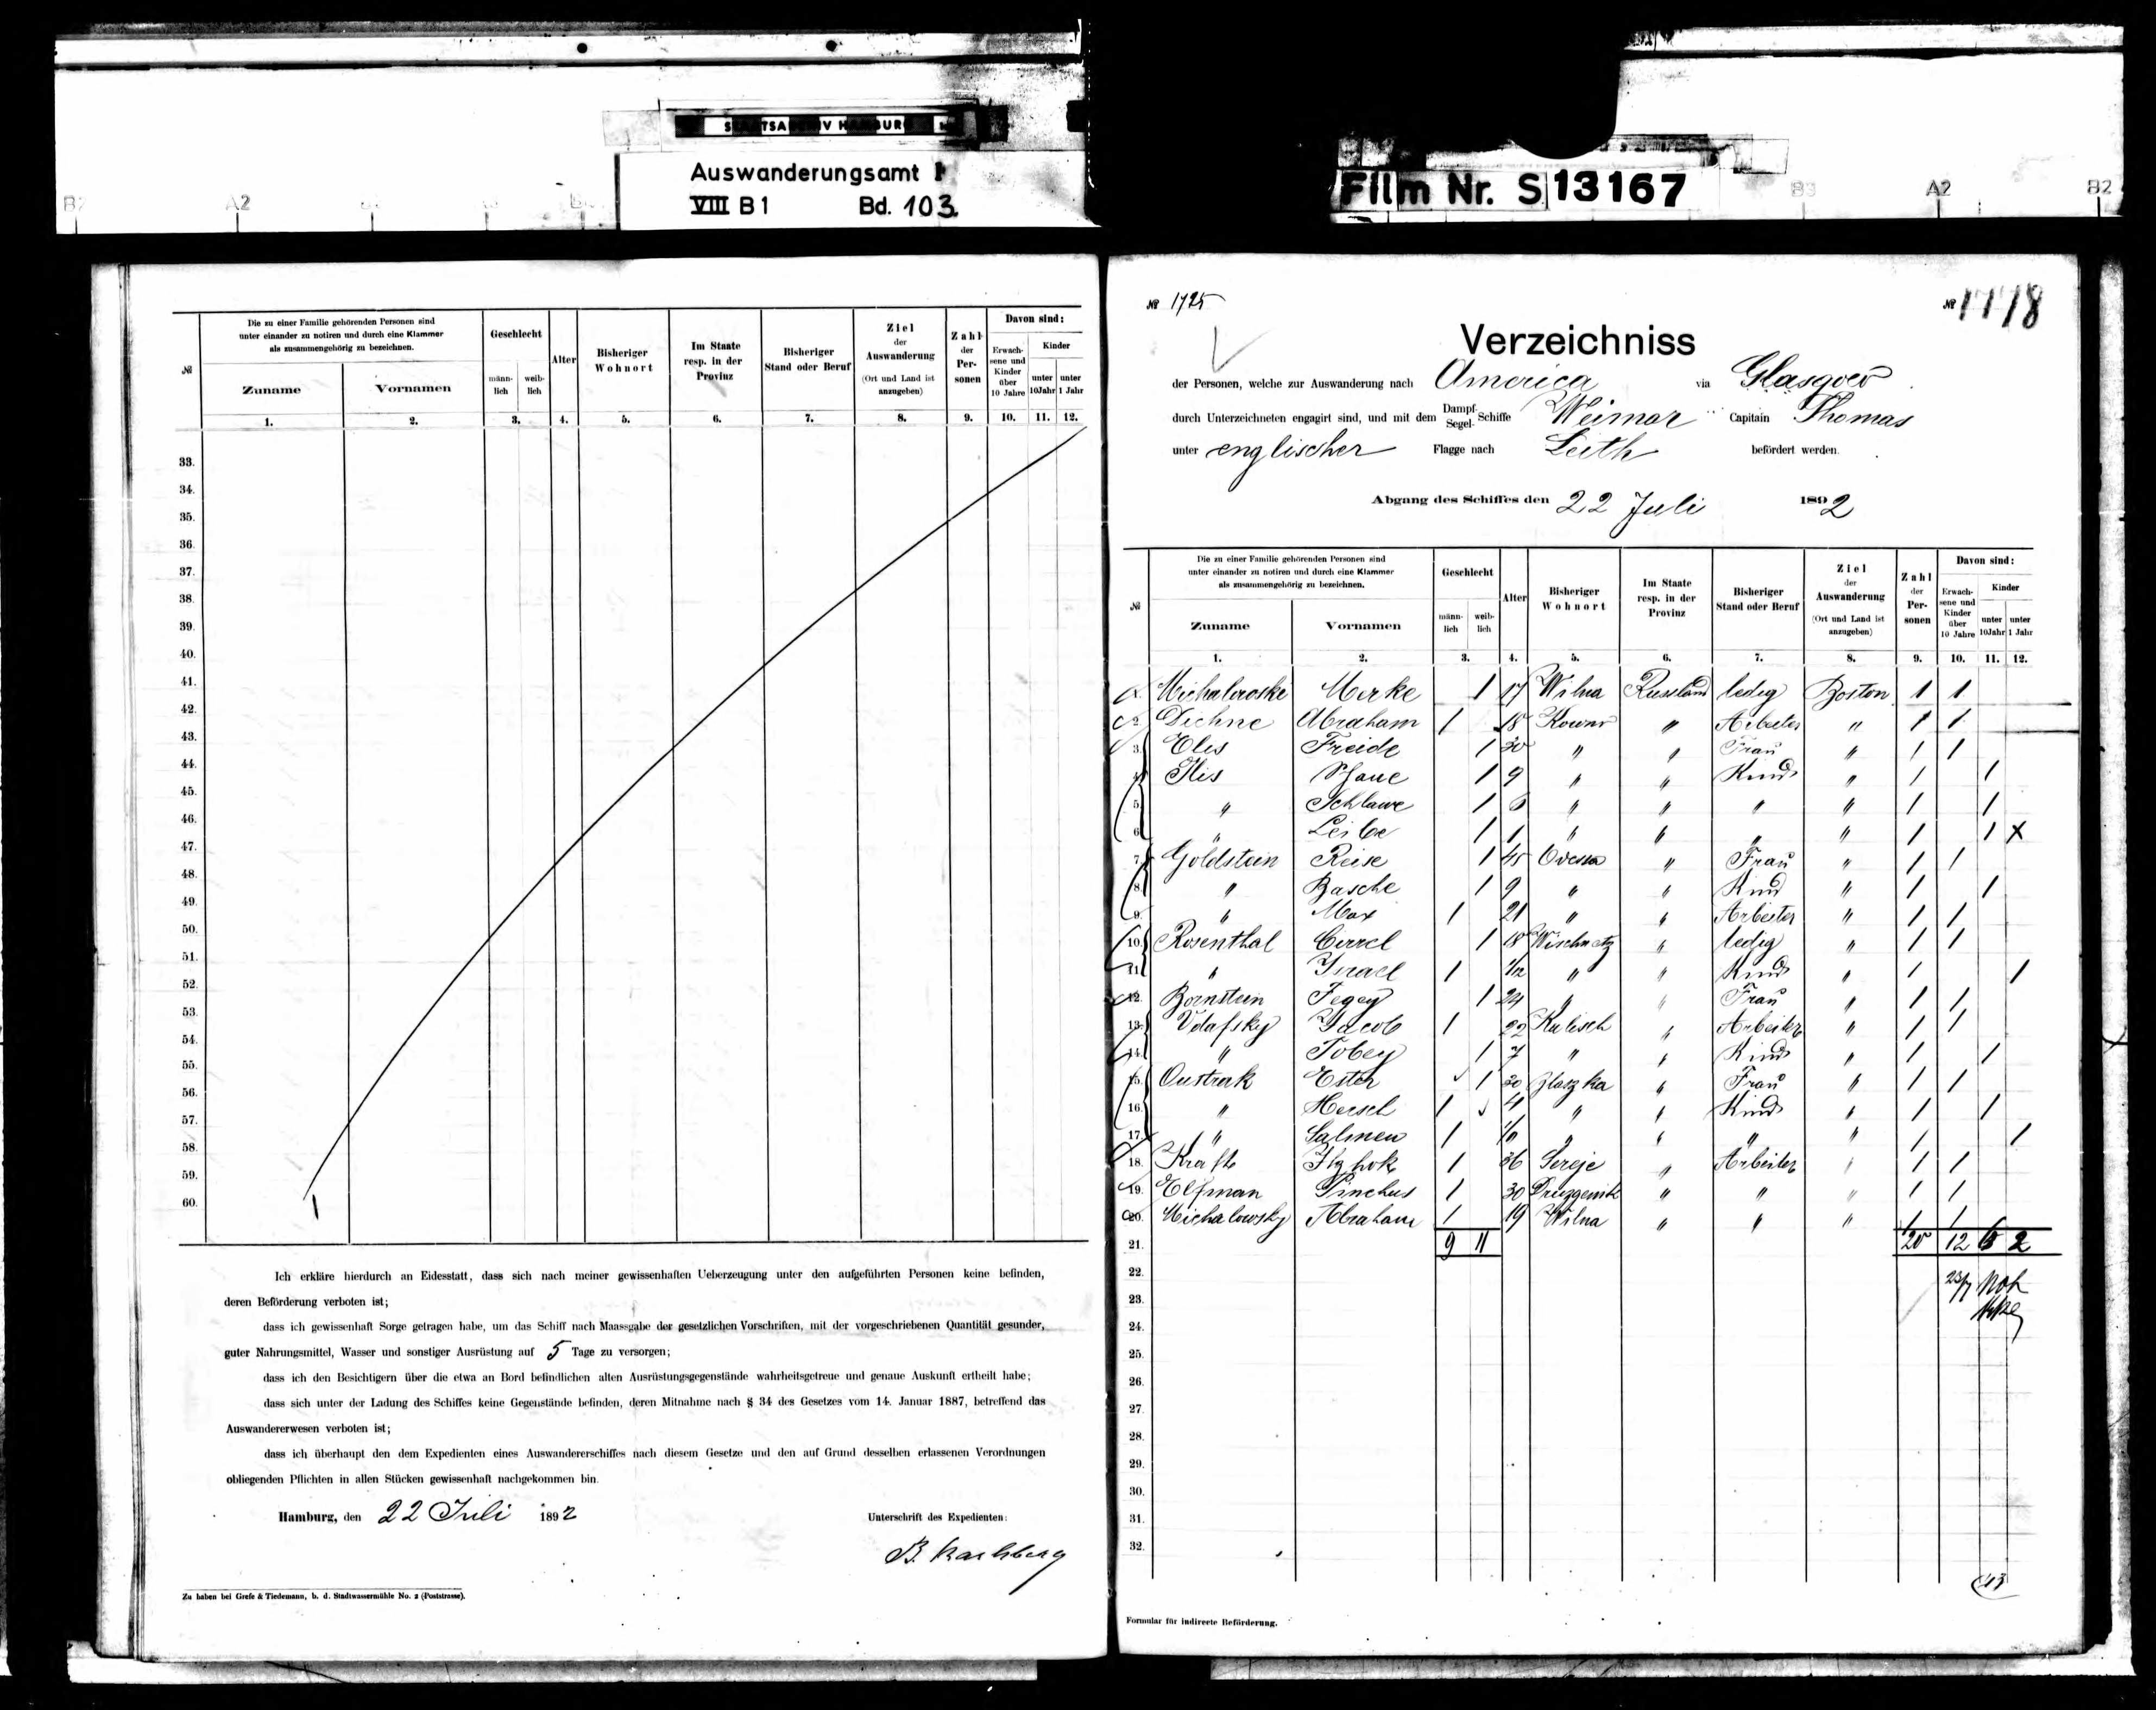 STAATSARCHIV HAMBURG
Auswanderungsamt I
VIII B 1 Bd. 103
Film Nr. S 13167
B2 A2 B3 A2 B2
№
Die zu einer Familie gehörenden Personen sind
unter einander zu notiren und durch eine Klammer
als zusammengehörig zu bezeichnen.
Zuname Vornamen
Geschlecht
männ-lich weib-lich
Alter
Bisheriger Wohnort
Im Staate resp. in der Provinz
Bisheriger Stand oder Beruf
Ziel der Auswanderung (Ort und Land ist anzugeben)
Zahl der Personen
Davon sind:
Erwachsene und Kinder über 10 Jahre
Kinder
unter 10Jahr unter 1 Jahr
1. 2. 3. 4. 5. 6. 7. 8. 9. 10. 11. 12.
33.
34.
35.
36.
37.
38.
39.
40.
41.
42.
43.
44.
45.
46.
47.
48.
49.
50.
51.
52.
53.
54.
55.
56.
57.
58.
59.
60.
Ich erkläre hierdurch an Eidesstatt, dass sich nach meiner gewissenhaften Ueberzeugung unter den aufgeführten Personen keine befinden,
deren Beförderung verboten ist;
dass ich gewissenhaft Sorge getragen habe, um das Schiff nach Maassgabe der gesetzlichen Vorschriften, mit der vorgeschriebenen Quantität gesunder,
guter Nahrungsmittel, Wasser und sonstiger Ausrüstung auf 5 Tage zu versorgen;
dass ich den Besichtigern über die etwa an Bord befindlichen alten Ausrüstungsgegenstände wahrheitsgetreue und genaue Auskunft ertheilt habe;
dass sich unter der Ladung des Schiffes keine Gegenstände befinden, deren Mitnahme nach § 34 des Gesetzes vom 14. Januar 1887, betreffend das
Auswandererwesen verboten ist;
dass ich überhaupt den dem Expedienten eines Auswandererschiffes nach diesem Gesetze und den auf Grund desselben erlassenen Verordnungen
obliegenden Pflichten in allen Stücken gewissenhaft nachgekommen bin.
Hamburg, den 22 Juli 1892
Unterschrift des Expedienten:
B. Karlsberg
Zu haben bei Grefe & Tiedemann, b. d. Stadtwassermühle No. 2 (Poststrasse).
№ 1725 № 1778
Verzeichniss
der Personen, welche zur Auswanderung nach America via Glasgow
durch Unterzeichneten engagirt sind, und mit dem Dampf- Segel- Schiffe Weimar Capitain Thomas
unter englischer Flagge nach Leith befördert werden.
Abgang des Schiffes den 22 Juli 1892
№
Die zu einer Familie gehörenden Personen sind
unter einander zu notiren und durch eine Klammer
als zusammengehörig zu bezeichnen.
Zuname Vornamen
Geschlecht
männ-lich weib-lich
Alter
Bisheriger Wohnort
Im Staate resp. in der Provinz
Bisheriger Stand oder Beruf
Ziel der Auswanderung (Ort und Land ist anzugeben)
Zahl der Personen
Davon sind:
Erwachsene und Kinder über 10 Jahre
Kinder
unter 10Jahr unter 1 Jahr
1. 2. 3. 4. 5. 6. 7. 8. 9. 10. 11. 12.
1. Michalowski Merke 1 17 Wilna Russland ledig Boston 1 1
2. Dichne Abraham 1 18 Kowno " Arbeiter " 1 1
3. Elis Freide 1 30 " " Frau " 1 1
4. Elis 1 9 " " Kind " 1 1
5. " Schlawe 1 " " " " 1 1
6. " Leibe 1 1 " " " " 1 1 X
7. Goldstein Reise 1 45 Odessa " Frau " 1 1
8. " Basche 1 9 " " Kind " 1 1
9. " Max 1 21 " " Arbeiter " 1 1
10. Rosenthal 1 18 " ledig " 1 1
11. " Israel 1 " " Kind " 1 1
12. Bornstein Fegey 1 24 " " Frau " 1 1
13. Jacob 1 22 Kalisch " Arbeiter " 1 1
14. " Tobey 1 7 " " Kind " 1 1
15. Ester 1 30 " Frau " 1 1
16. " Hersch 1 4 " " Kind " 1 1
17. " Salmen 1 " " " " 1 1
18. Kraft 1 36 Sereje " Arbeiter " 1 1
19. Elfman Pinchus 1 30 " " " 1 1
20. Michalowsky Abraham 1 19 Wilna " " " 1 1
21. 9 11 20 12 6 2
22. 23/7
23.
24.
25.
26.
27.
28.
29.
30.
31.
32.
Formular für indirecte Beförderung.